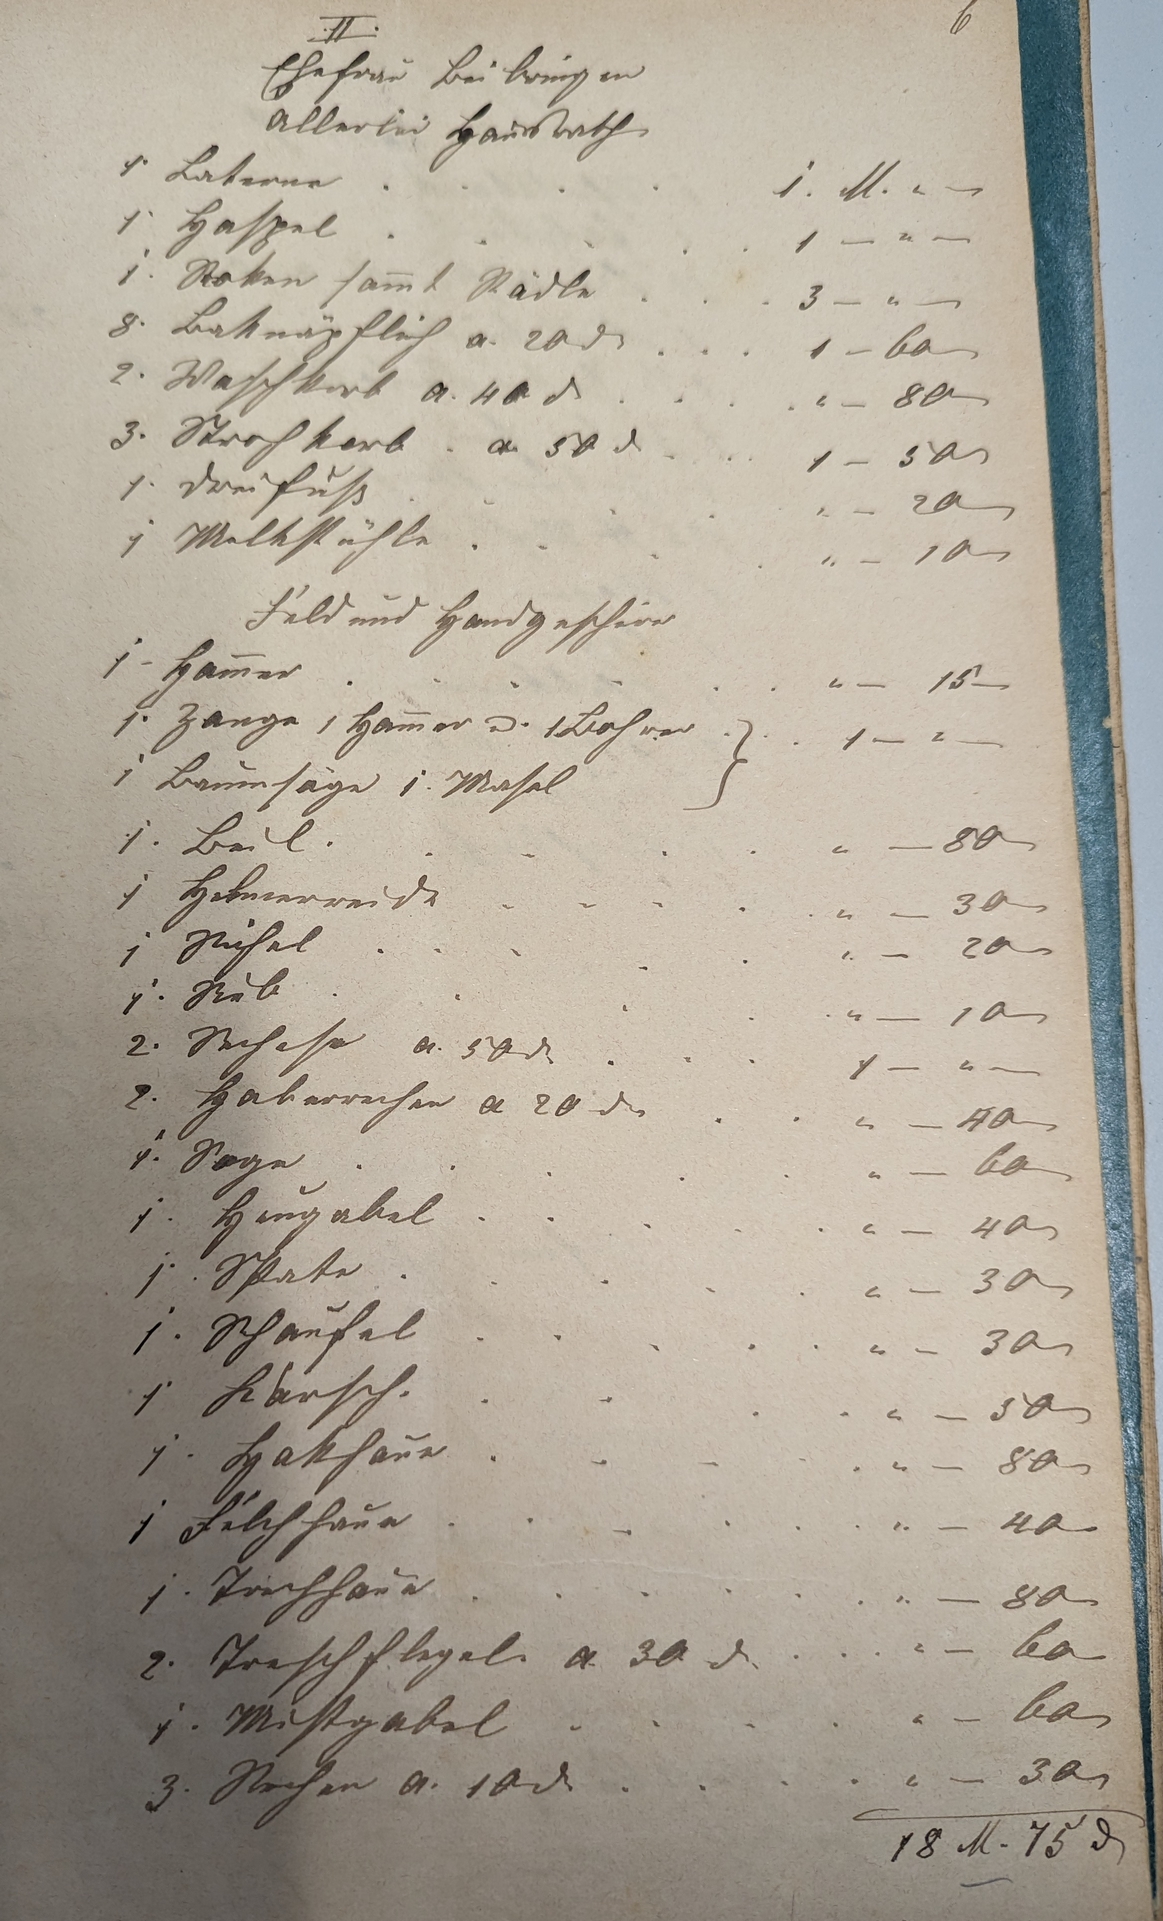 6
II.
Ehefrau Beibringen
Allerlei Hausrath
1. Laterne . . . . 1. M. " —
1. Haspel . . . . . 1 — " —
1. Roken sam̅t Rädle . . . 3 — " —
8. Baknäpflich a. 20 ₰ . . . 1 — 60
2. Waschkorb a. 40 ₰ . . . . " — 80
3. Strohkorb . a. 50 ₰ . . . 1 — 50
1. Dreifuß . . . . " — 20
1 Melkstühle . . . . " — 10
Feld und Handgeschirr
1 - Ham̅er . . . . . . " — 15
1. Zange 1 Ham̅er u. 1 Bohrer . . . 1 — " —
1 Baumsäge 1. Masel
1. Beil . . . . . " — 80
1 . . . . . " — 30
1 Sichel . . . . . " — 20
1. Reb . . . . . " — 10
2. a. 50 ₰ . . . 1 — " —
2. Haberrechen a 20 ₰ . . " — 40
1. Sege . . . . . " — 60
1. Heugabel . . . . . " — 40
1. Spate . . . . . " — 30
1. Schaufel . . . . . " — 30
1 Karsch. . . . . " — 50
1. Hakhaue . . . . " — 80
1 Felchhaue . . . . . . " — 40
1. . . . . . . " — 80
2. Treschflegel a 30 ₰ . . . " — 60
1. Mistgabel . . . . " — 60
3. Rechen a. 10 ₰ . . . . " — 30
18 M. 75 ₰